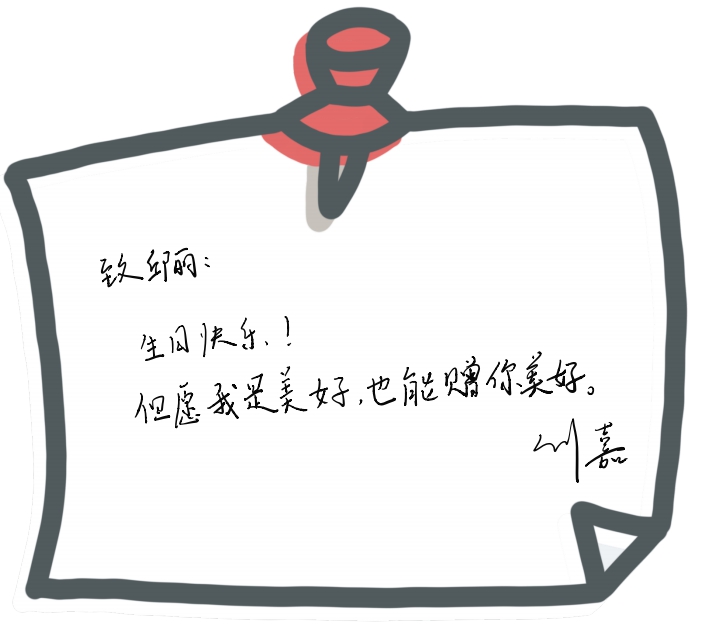 致邱丽：
生日快乐！
但愿我是美好，也能赠你美好。
小川嘉